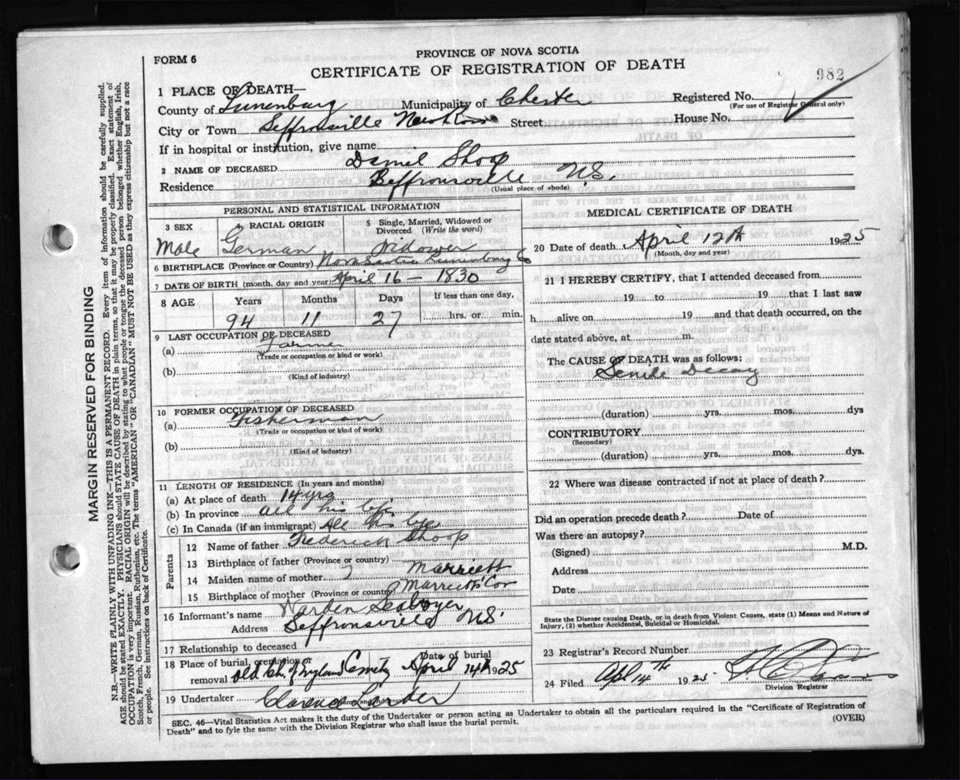 PROVINCE OF NOVA SCOTIA
FORM 6
CERTIFICATE OF REGISTRATION OF DEATH
982
1 PLACE OF DEATH—
County of Lunenburg Municipality of Chester Registered No.
(For use of Registrar General only)
City or Town Seffronsville Street House No.
If in hospital or institution, give name
2 NAME OF DECEASED Daniel Shoop
Residence Seffronsville N.S.
(Usual place of abode)
PERSONAL AND STATISTICAL INFORMATION
3 SEX 4 RACIAL ORIGIN 5 Single, Married, Widowed or Divorced (Write the word)
Male German Widower
6 BIRTHPLACE (Province or Country) Nova Scotia Lunenburg Co
7 DATE OF BIRTH (month, day and year) April 16 - 1830
8 AGE Years Months Days If less than one day,
94 11 27 hrs. or min.
9 LAST OCCUPATION OF DECEASED
(a) Farmer
(Trade or occupation or kind or work)
(b)
(Kind of industry)
10 FORMER OCCUPATION OF DECEASED
(a) Fisherman
(Trade or occupation or kind or work)
(b)
(Kind of industry)
11 LENGTH OF RESIDENCE (In years and months)
(a) At place of death 14 yrs
(b) In province all his life
(c) In Canada (if an immigrant) All his life
Parents
12 Name of father Frederick Shoop
13 Birthplace of father (Province or country)
14 Maiden name of mother
15 Birthplace of mother (Province or country)
16 Informant's name Warden
Address Seffronsville N.S.
17 Relationship to deceased
18 Place of burial, cremation or removal Date of burial
April 14th 1925
19 Undertaker Clarence
MEDICAL CERTIFICATE OF DEATH
20 Date of death April 12th 1925
(Month, day and year)
21 I HEREBY CERTIFY, that I attended deceased from
19 to 19 that I last saw
h alive on 19 and that death occurred, on
date stated above, at m.
The CAUSE OF DEATH was as follows:
Senile Decay
(duration) yrs. mos. dys
CONTRIBUTORY
(Secondary)
(duration) yrs. mos. dys.
22 Where was disease contracted if not at place of death?
Did an operation precede death? Date of
Was there an autopsy?
(Signed) M.D.
Address
Date
State the Disease causing Death, or in death from Violent Causes, state (1) Means and Nature of
Injury, (2) whether Accidental, Suicidal or Homicidal.
23 Registrar's Record Number
24 Filed Apl 14th 1925
Division Registrar
SEC. 46—Vital Statistics Act makes it the duty of the Undertaker or person acting as Undertaker to obtain all the particulars required in the "Certificate of Registration of
Death" and to fyle the same with the Division Registrar who shall issue the burial permit. (OVER)
MARGIN RESERVED FOR BINDING
N.B.—WRITE PLAINLY WITH UNFADING INK—THIS IS A PERMANENT RECORD. Every item of information should be carefully supplied.
AGE should be stated EXACTLY. PHYSICIANS should STATE CAUSE OF DEATH in plain terms, so that it may be properly classified. Exact statement of
OCCUPATION is very important. RACIAL ORIGIN will be described by stating to what people or tongue the deceased person belonged whether English, Irish,
Scotch, French, German, Russian, Ruthenian, etc. The terms "AMERICAN" OR "CANADIAN" MUST NOT BE USED as they express citizenship but not a race
or people. See instructions on back of Certificate.